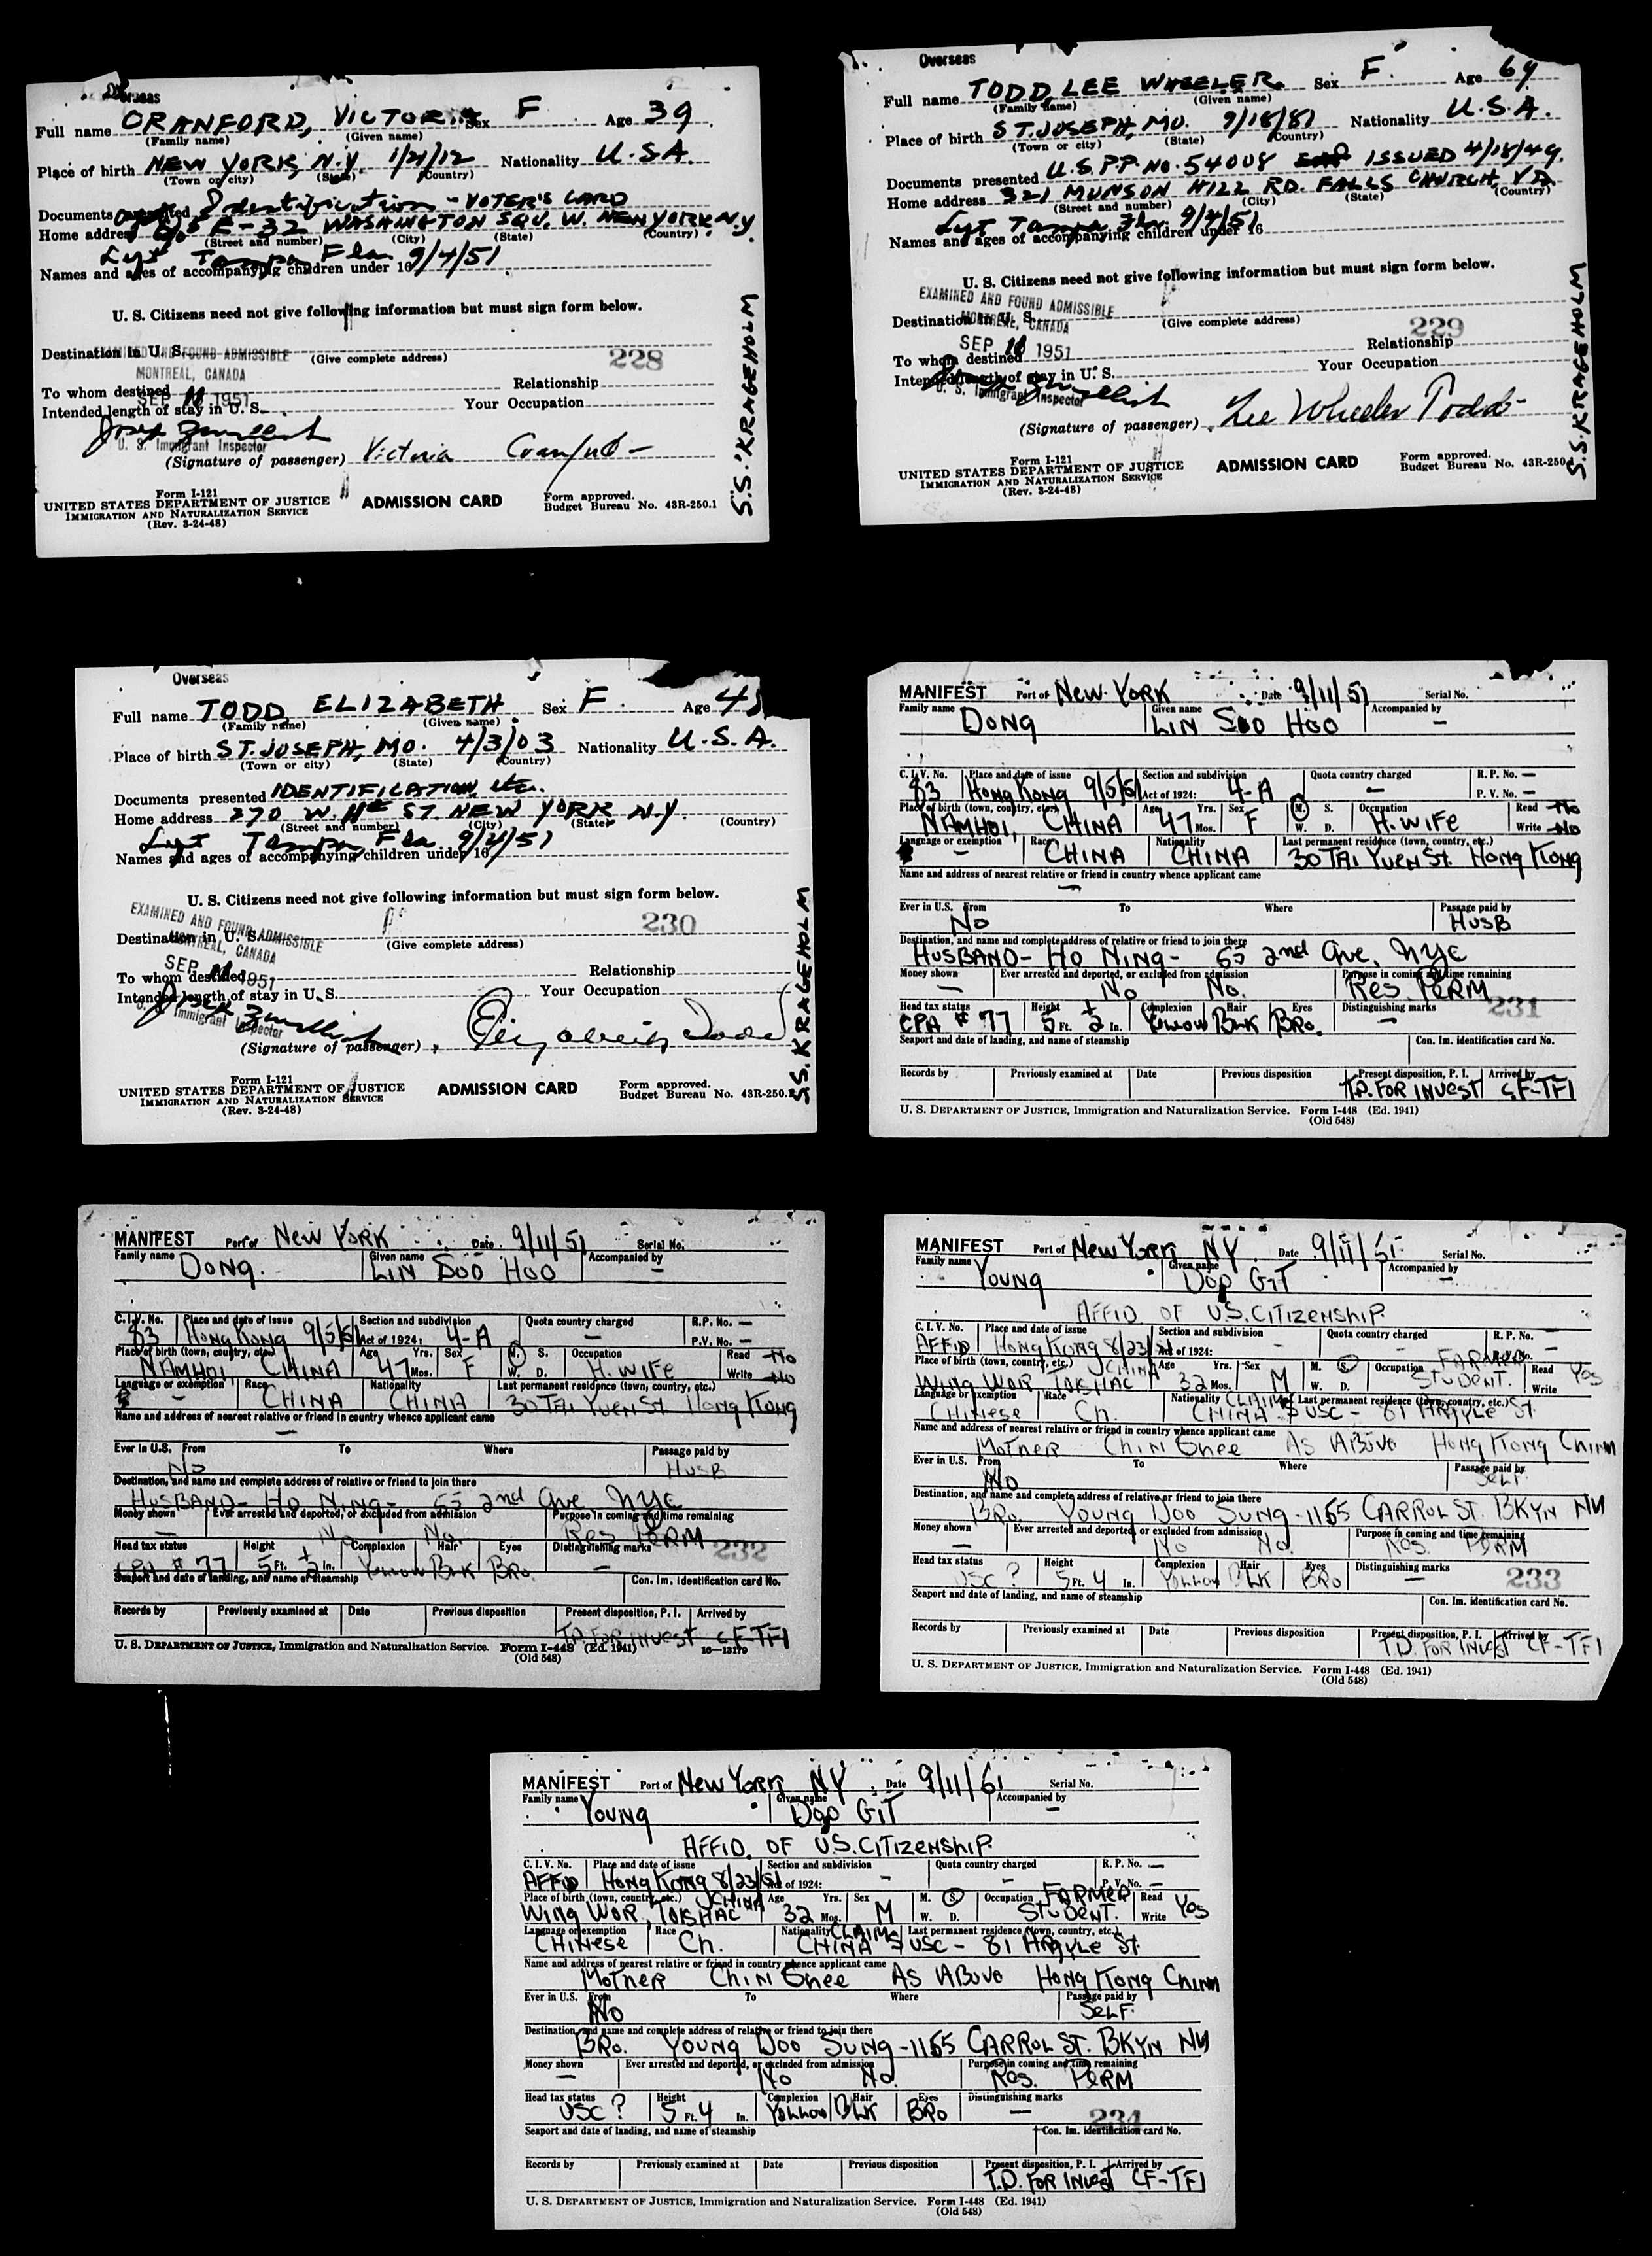 Overseas
Full name CRANFORD, VICTORIA Sex F Age 39
(Family name) (Given name)
Place of birth NEW YORK, N.Y. 1/21/12 Nationality U.S.A.
(Town or city) (State) (Country)
Documents presented Identification - VOTER'S CARD
Home address F-32 WASHINGTON SQU. W. NEW YORK, N.Y.
(Street and number) (City) (State) (Country)
Left Tampa Fla. 9/4/51
Names and ages of accompanying children under 16
U. S. Citizens need not give following information but must sign form below.
Destination in U. S.
EXAMINED AND FOUND ADMISSIBLE
(Give complete address)
228
MONTREAL, CANADA
To whom destined Relationship
SEP 1951
Intended length of stay in U. S. Your Occupation
U. S. Immigrant Inspector
(Signature of passenger) Victoria Cranford
Form I-121
UNITED STATES DEPARTMENT OF JUSTICE
IMMIGRATION AND NATURALIZATION SERVICE
(Rev. 3-24-48)
ADMISSION CARD
Form approved.
Budget Bureau No. 43R-250.1
S.S. KRAGEHOLM
Overseas
Full name TODD, LEE WHEELER Sex F. Age 69
(Family name) (Given name)
Place of birth ST. JOSEPH, MO. 9/18/81 Nationality U.S.A.
(Town or city) (State) (Country)
Documents presented U.S.P.P. NO. 54008 ISSUED 4/18/49.
Home address 321 MUNSON HILL RD. FALLS CHURCH VA
(Street and number) (City) (State) (Country)
Left Tampa Fla 9/4/51
Names and ages of accompanying children under 16
U. S. Citizens need not give following information but must sign form below.
EXAMINED AND FOUND ADMISSIBLE
Destination in U. S.
MONTREAL, CANADA
(Give complete address)
229
SEP 1951
Relationship
To whom destined Your Occupation
Intended length of stay in U. S.
U. S. Immigrant Inspector
(Signature of passenger) Lee Wheeler Todd
Form I-121
UNITED STATES DEPARTMENT OF JUSTICE
IMMIGRATION AND NATURALIZATION SERVICE
(Rev. 3-24-48)
ADMISSION CARD
Form approved.
Budget Bureau No. 43R-250.
S.S. KRAGEHOLM
Overseas
Full name TODD ELIZABETH Sex F. Age
(Family name) (Given name)
Place of birth ST. JOSEPH, MO. 4/3/03 Nationality U.S.A.
(Town or city) (State) (Country)
Documents presented IDENTIFICATION, etc.
Home address 270 W. 11th ST. NEW YORK N.Y.
(Street and number) (City) (State) (Country)
Left Tampa Fla. 9/4/51
Names and ages of accompanying children under 16
U. S. Citizens need not give following information but must sign form below.
EXAMINED AND FOUND ADMISSIBLE
230
Destination in U. S.
MONTREAL, CANADA
(Give complete address)
SEP 1951
To whom destined Relationship
Intended length of stay in U. S. Your Occupation
Immigrant Inspector
(Signature of passenger) Elizabeth Todd
Form I-121
UNITED STATES DEPARTMENT OF JUSTICE
IMMIGRATION AND NATURALIZATION SERVICE
(Rev. 3-24-48)
ADMISSION CARD
Form approved.
Budget Bureau No. 43R-250.
S.S. KRAGEHOLM
MANIFEST Port of New York Date 9/11/51 Serial No.
Family name Given name Accompanied by
DONG LIN SOO HOO —
C.I.V. No. Place and date of issue Section and subdivision Quota country charged R. P. No. —
83 HONG KONG 9/5/51 Act of 1924: 4-A — P. V. No. —
Place of birth (town, country, etc.) Age Yrs. Sex M. S. Occupation Read No
NAMHOI, CHINA 47 Mos. F W. D. H. WIFE Write No
Language or exemption Race Nationality Last permanent residence (town, country, etc.)
— CHINA CHINA 30 TAI YUEN ST. HONG KONG
Name and address of nearest relative or friend in country whence applicant came
—
Ever in U.S. From To Where Passage paid by
No HUSB
Destination, and name and complete address of relative or friend to join there
HUSBAND - HO NING - 55 2nd Ave, NYC
Money shown Ever arrested and deported, or excluded from admission Purpose in coming and time remaining
— No No. Res. PERM
231
Head tax status Height Complexion Hair Eyes Distinguishing marks
CPA # 77 5 Ft. ½ In. Yellow Blk BRO. —
Seaport and date of landing, and name of steamship Con. Im. identification card No.
Records by Previously examined at Date Previous disposition Present disposition, P. I. Arrived by
T.D. FOR INVEST CF-TF1
U. S. DEPARTMENT OF JUSTICE, Immigration and Naturalization Service. Form I-448 (Ed. 1941)
(Old 548)
MANIFEST Port of New York Date 9/11/51 Serial No.
Family name Given name Accompanied by
DONG. LIN SOO HOO —
C.I.V. No. Place and date of issue Section and subdivision Quota country charged R.P. No. —
83 HONG KONG 9/5/51 Act of 1924: 4-A — P.V. No. —
Place of birth (town, country, etc.) Age Yrs. Sex M. S. Occupation Read No
NAMHOI, CHINA 47 Mos. F W. D. H. WIFE Write No
Language or exemption Race Nationality Last permanent residence (town, country, etc.)
— CHINA CHINA 30 TAI YUEN ST. HONG KONG
Name and address of nearest relative or friend in country whence applicant came
—
Ever in U.S. From To Where Passage paid by
No HUSB
Destination, and name and complete address of relative or friend to join there
HUSBAND - HO NING - 55 2nd Ave, NYC
Money shown Ever arrested and deported, or excluded from admission Purpose in coming and time remaining
— No No. Res PERM
232
Head tax status Height Complexion Hair Eyes Distinguishing marks
CPA # 77 5 Ft. ½ In. Yellow Blk BRO. —
Seaport and date of landing, and name of steamship Con. Im. identification card No.
Records by Previously examined at Date Previous disposition Present disposition, P. I. Arrived by
T.D. FOR INVEST CF-TF1
U. S. DEPARTMENT OF JUSTICE, Immigration and Naturalization Service. Form I-448 (Ed. 1941) 16—13179
(Old 548)
MANIFEST Port of New York NY Date 9/11/51 Serial No.
Family name Given name Accompanied by
YOUNG DOP GIT —
AFFID. OF U.S. CITIZENSHIP
C. I. V. No. Place and date of issue Section and subdivision Quota country charged R. P. No. —
AFFID HONG KONG 8/23/51 Act of 1924: — — P. V. No. —
Place of birth (town, country, etc.) Age Yrs. Sex M. S. Occupation FARMER Read Yes
WING WOR, TOISHAC CHINA 32 Mos. M W. D. STUDENT. Write
Language or exemption Race Nationality CLAIMS Last permanent residence (town, country, etc.)
CHINESE Ch. CHINA USC - 81 ARGYLE ST.
Name and address of nearest relative or friend in country whence applicant came
MOTHER CHIN GHEE AS ABOVE HONG KONG CHINA
Ever in U.S. From To Where Passage paid by
No SELF.
Destination, and name and complete address of relative or friend to join there
BRO. YOUNG DOO SUNG - 1155 CARROL ST. BKYN NY
Money shown Ever arrested and deported, or excluded from admission Purpose in coming and time remaining
— No No. Res. PERM
Head tax status Height Complexion Hair Eyes Distinguishing marks
USC ? 5 Ft. 4 In. Yellow BLK BRO —
233
Seaport and date of landing, and name of steamship Con. Im. identification card No.
Records by Previously examined at Date Previous disposition Present disposition, P. I. Arrived by
T.D. FOR INVEST CF-TF1
U. S. DEPARTMENT OF JUSTICE, Immigration and Naturalization Service. Form I-448 (Ed. 1941)
(Old 548)
MANIFEST Port of New York NY Date 9/11/51 Serial No.
Family name Given name Accompanied by
YOUNG DOP GIT —
AFFID. OF U.S. CITIZENSHIP.
C. I. V. No. Place and date of issue Section and subdivision Quota country charged R. P. No. —
AFFID HONG KONG 8/23/51 Act of 1924: — — P. V. No. —
Place of birth (town, country, etc.) Age Yrs. Sex M. S. Occupation FARMER Read Yes
WING WOR, TOISHAC CHINA 32 Mos. M W. D. STUDENT. Write
Language or exemption Race Nationality CLAIMS Last permanent residence (town, country, etc.)
CHINESE Ch. CHINA USC - 81 ARGYLE ST.
Name and address of nearest relative or friend in country whence applicant came
MOTHER CHIN GHEE AS ABOVE HONG KONG CHINA
Ever in U.S. From To Where Passage paid by
No SELF.
Destination, and name and complete address of relative or friend to join there
BRO. YOUNG DOO SUNG - 1155 CARROL ST. BKYN NY
Money shown Ever arrested and deported, or excluded from admission Purpose in coming and time remaining
— No No. Res. PERM
Head tax status Height Complexion Hair Eyes Distinguishing marks
USC ? 5 Ft. 4 In. Yellow BLK BRO —
234
Seaport and date of landing, and name of steamship Con. Im. identification card No.
Records by Previously examined at Date Previous disposition Present disposition, P. I. Arrived by
T.D. FOR INVEST CF-TF1
U. S. DEPARTMENT OF JUSTICE, Immigration and Naturalization Service. Form I-448 (Ed. 1941)
(Old 548)